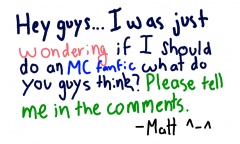 Hey guys... I was just
wondering if I should
do an MC fanfic what do
you guys think? Please tell
me in the comments.
-Matt ^-^